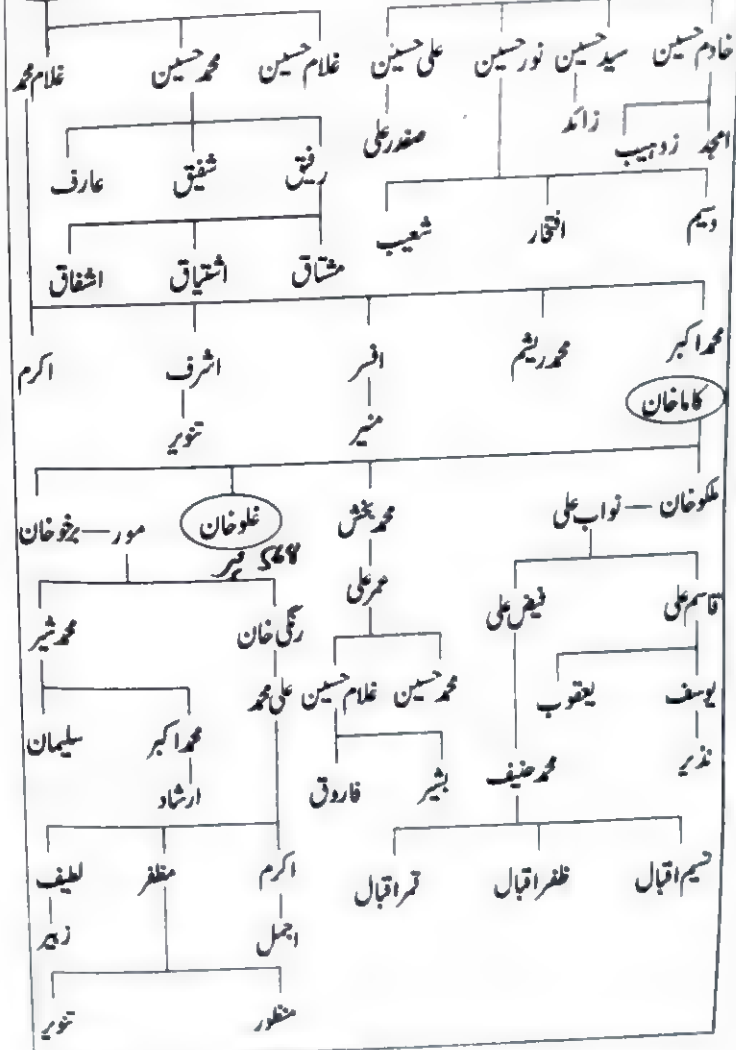 خادم حسین سید حسین نور حسین علی حسین غلام حسین محمد حسین غلام محمد
امجد زوہیب زائد صفدر علی
رفیق شفیق عارف
وسیم افتخار شعیب
مشتاق اشتیاق اشفاق
محمد اکبر محمد ریشم افسر اشرف اکرم
کاما خان
منیر تنویر
ملکو خان — نواب علی محمد بخش غلو خان مور — برخو خان
568
قاسم علی فیض علی عمر علی رنگی خان محمد شیر
یوسف یعقوب محمد حسین غلام حسین علی محمد
نذیر محمد حنیف بشیر فاروق محمد اکبر سلیمان
ارشاد
نسیم اقبال ظفر اقبال قمر اقبال اکرم مظفر لطیف
اجمل زبیر
منظور تنویر